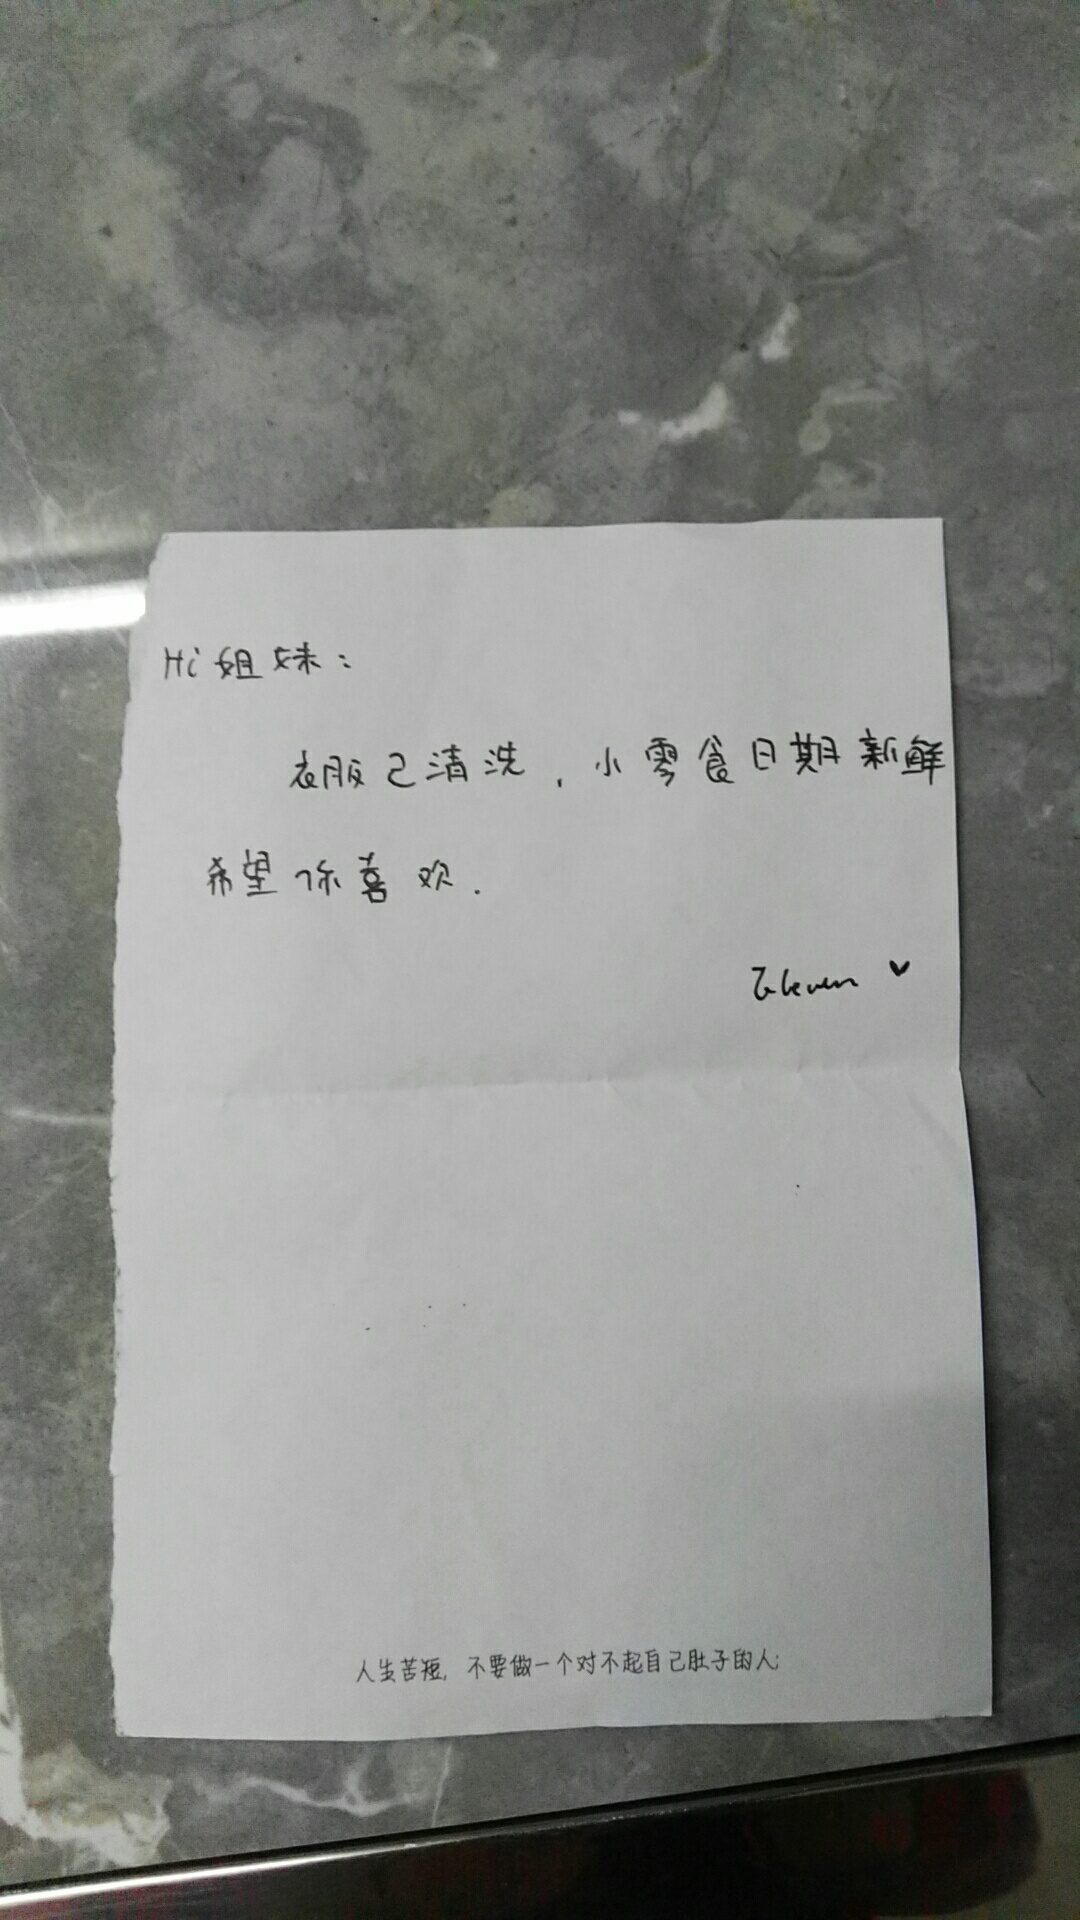 Hi 姐妹：
衣服已清洗，小零食日期新鲜
希望你喜欢.
Eleven
人生苦短，不要做一个对不起自己肚子的人